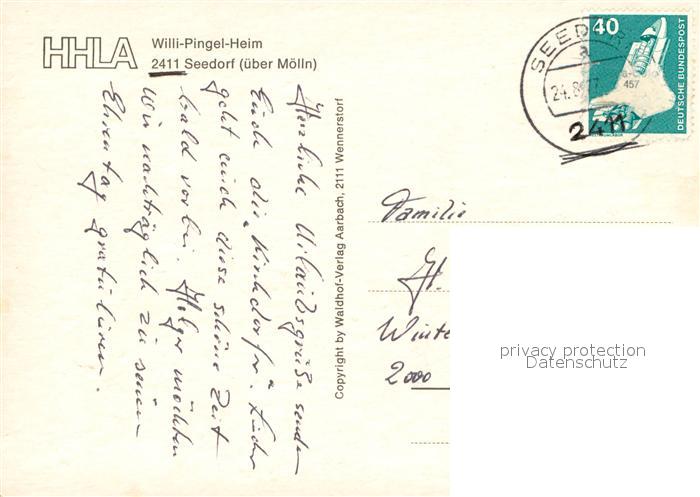 HHLA
Willi-Pingel-Heim
2411 Seedorf (über Mölln)
Herzliche Urlaubsgrüße senden
Euch die "Kirchdorfer". Leider
geht auch diese schöne Zeit
bald vorbei. Helga möchten
wir nachträglich zu seinem
Ehrentag gratulieren.
Copyright by Waldhof-Verlag Aarbach, 2111 Wennerstorf
SEED
24.8.
2411
40
DEUTSCHE BUNDESPOST
457
Familie
H.
Winte
2000
privacy protection
Datenschutz